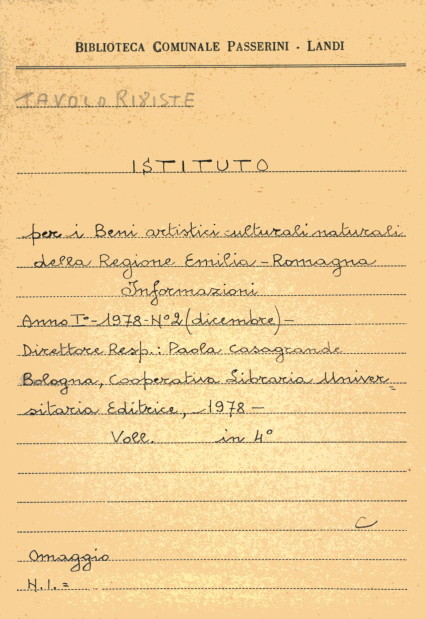 BIBLIOTECA COMUNALE PASSERINI - LANDI
TAVOLO RIVISTE
ISTITUTO
per i Beni artistici culturali naturali
della Regione Emilia-Romagna
Informazioni
Anno I°-1978-N°2 (dicembre)-
Direttore Resp.: Paola Casagrande
Bologna, Cooperativa Libraria Univer=
sitaria Editrice, 1978-
Voll. in 4°
C
Omaggio
N.I.=